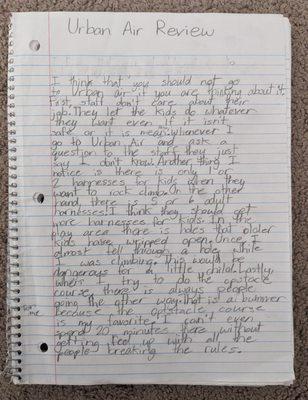 Urban Air Review
I think that you should not go
to Urban air if you are thinking about it.
First, staff don't care about their
job. They let the kids do whatever
they want even if it isn't
safe or it is mean. Whenever I
go to Urban Air and ask a
question to the staff they just
say I don't know. Another thing I
notice is there is only 1 or
2 harnesses for kids when they
want to rock climb. On the other
hand, there is 5 or 6 adult
harnesses. I think they should get
more harnesses for kids. In the
play area there is holes that older
kids have wripped open. Once I
almost fell through a hole while
I was climbing. This would be
dangerous for a little child. Lastly,
when I try to do the obstacle
course, there is always people
going the other way. that is a bummer
because the obstacle course
is my favorite. I can't even
spend 20 minutes there without
getting feel up with all the
people breaking the rules.